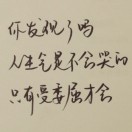 你发现了吗
人生气是不会哭的
只有受委屈才会